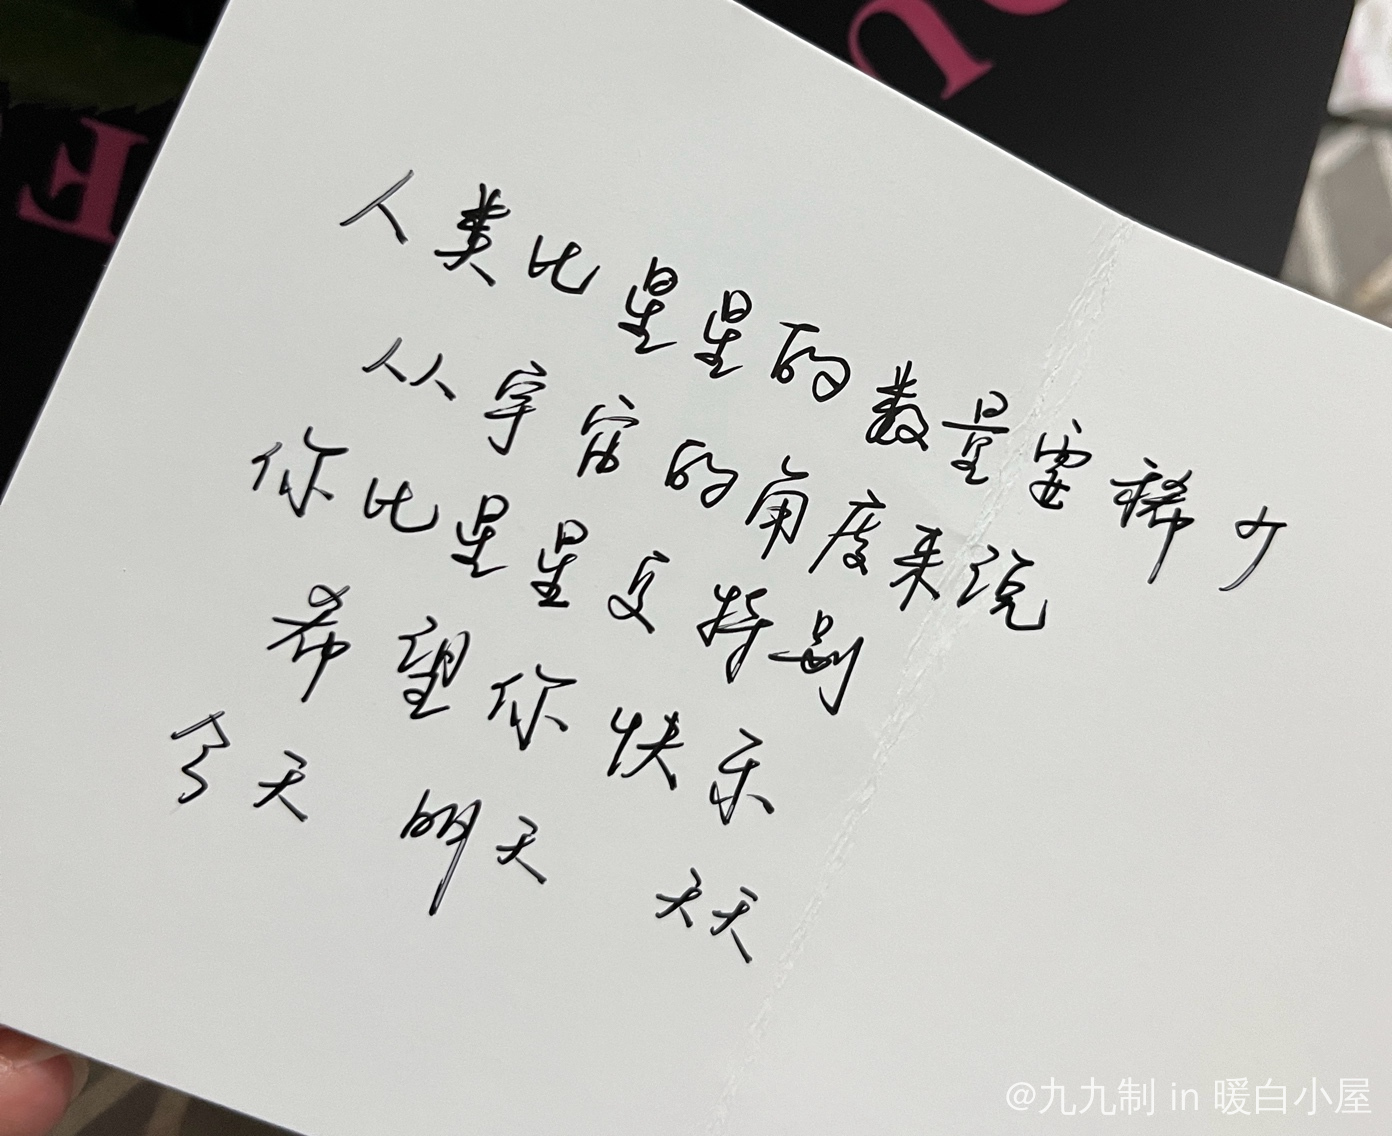 人类比星星的数量要稀少
从宇宙的角度来说
你比星星更特别
希望你快乐
今天 明天 天天
@九九制 in 暖白小屋